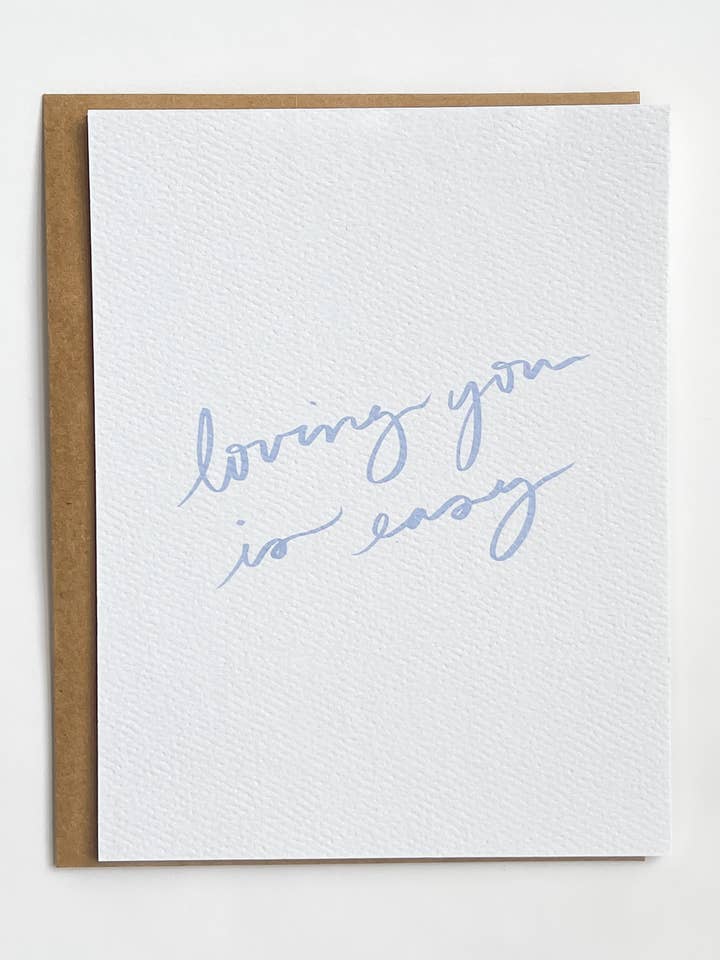 loving you
is easy